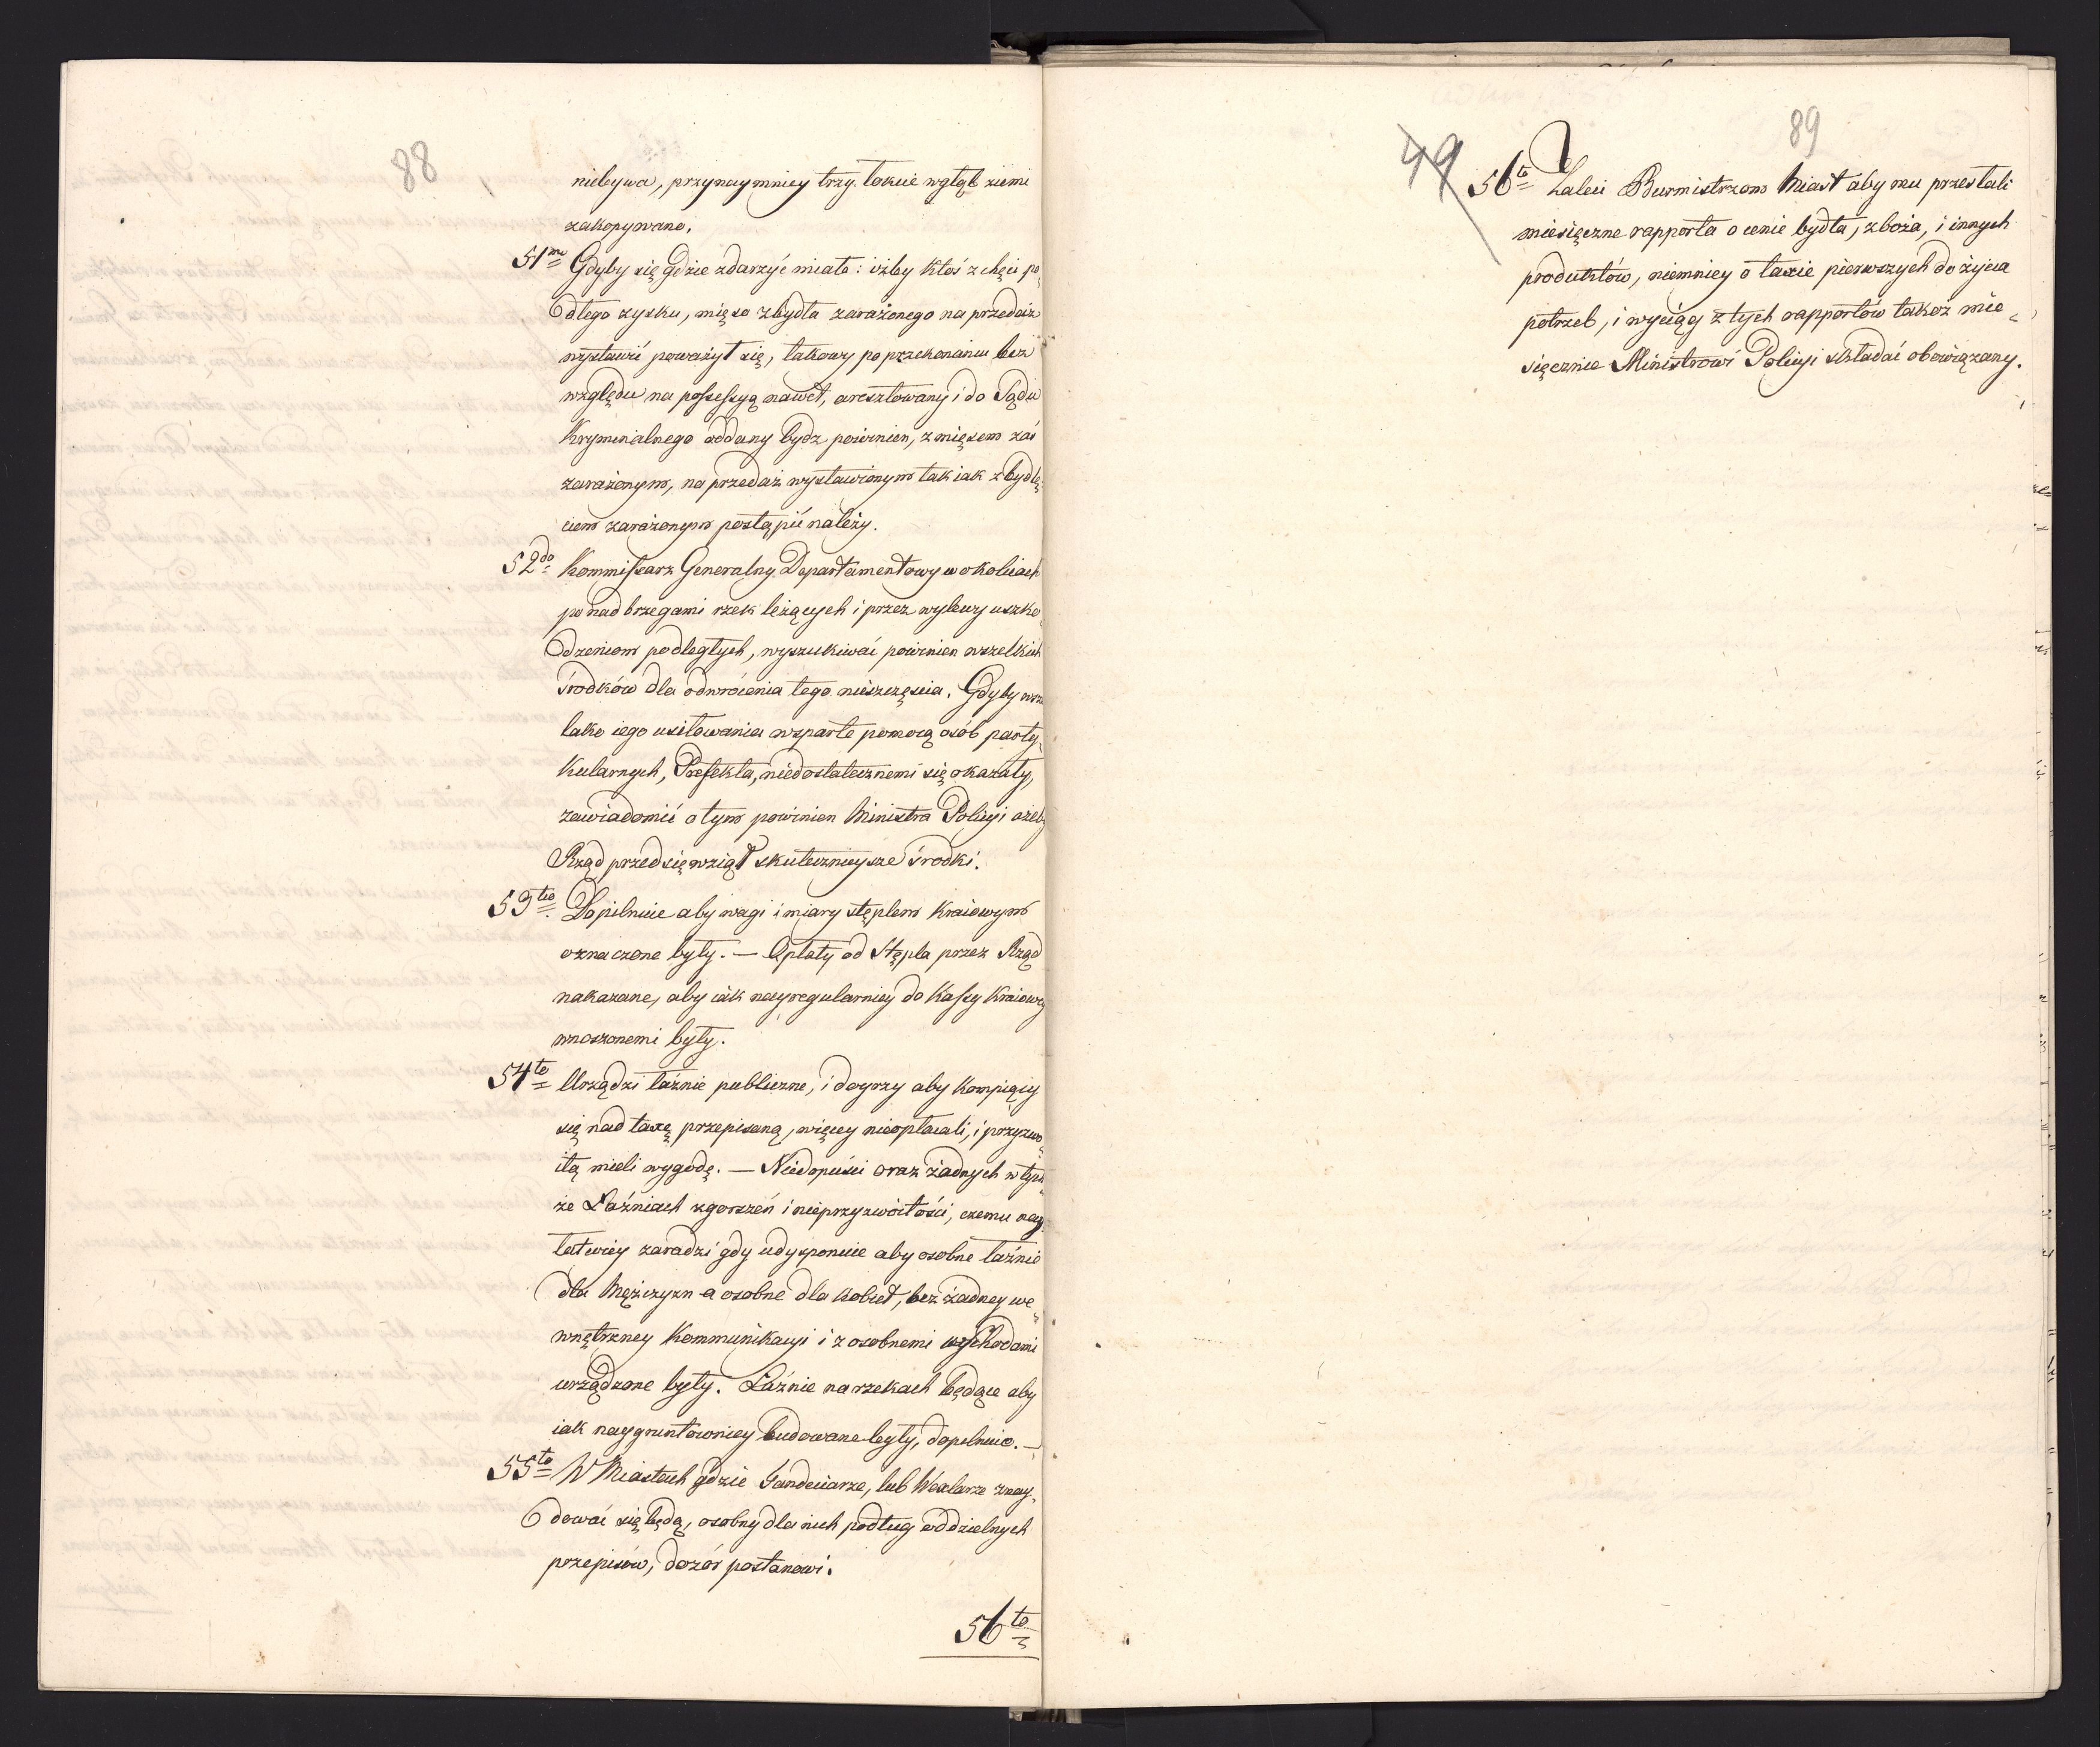 88
niebywa, przynaymniey trzy łokcie wgłąb ziemi
zakopywano.
51mo Gdyby się gdzie zdarzyć miało: iżby ktoś z chęci po„
dłego zysku, mięso z bydła zarażonego na przedaż
wystawić poważył się, takowy po przekonaniu bez
względu na possessyą nawet, aresztowany i do Sądu
Kryminalnego oddany bydz powinien, z mięsem zaś
zarażonym, na przedaż wystawionym tak iak z bydlę„
ciem zarażonym postąpić należy.
52do Kommissarz Generalny Departamentowy w okolicach
ponad brzegami rzek leżących i przez wylewy uszko„
dzeniom podległych, wyszukiwać powinien wszelkich
środków dla odwrócenia tego nieszczęścia. Gdyby wsze
lako iego usiłowania wsparte pomocą osób party„
kularnych, Prefekta, niedostatecznemi się okazały,
zawiadomić o tym powinien Ministra Policyi ażeby
Rząd przedsięwziął skutecznieysze środki.
53tio Dopilnuie aby wagi i miary stęplem Kraiowym
oznaczone były. — Opłaty od Stępla przez Rząd
nakazane, aby iak nayregularniey do Kassy Kraiowey
wnoszonemi były.
54to Urządzi łaźnie publiczne, i doyrzy aby kompiący
się nad taxę przepisaną, więcey nieopłacali, i przyzwo„
itą mieli wygodę. — Niedopuści oraz żadnych w tych„
że Łaźniach zgorszeń i nieprzyzwoitości, czemu nay„
łatwiey zaradzi gdy udysponuie aby osobne łaźnie
dla Mężczyzn a osobne dla kobiet, bez żadney we„
wnętrzney Kommunikacyi i z osobnemi wschodami
urządzone były. Łaźnie na rzekach będące aby
iak naygruntowniey budowane były, dopilnuie. —
55to W Miastach gdzie Fandeciarze, lub Wexlarze znay„
dować się będą, osobny dla nich podług oddzielnych
przepisów, dozór postanowi.
56to
89
49
56to Zaleci Burmistrzom Miast aby mu przesłali
miesięczne rapporta o cenie bydła, zboża, i innych
produktów, niemniey o taxie pierwszych do życia
potrzeb, i wyciąg z tych rapportów takoż mie„
sięcznie Ministrowi Policyi składać obowiązany.